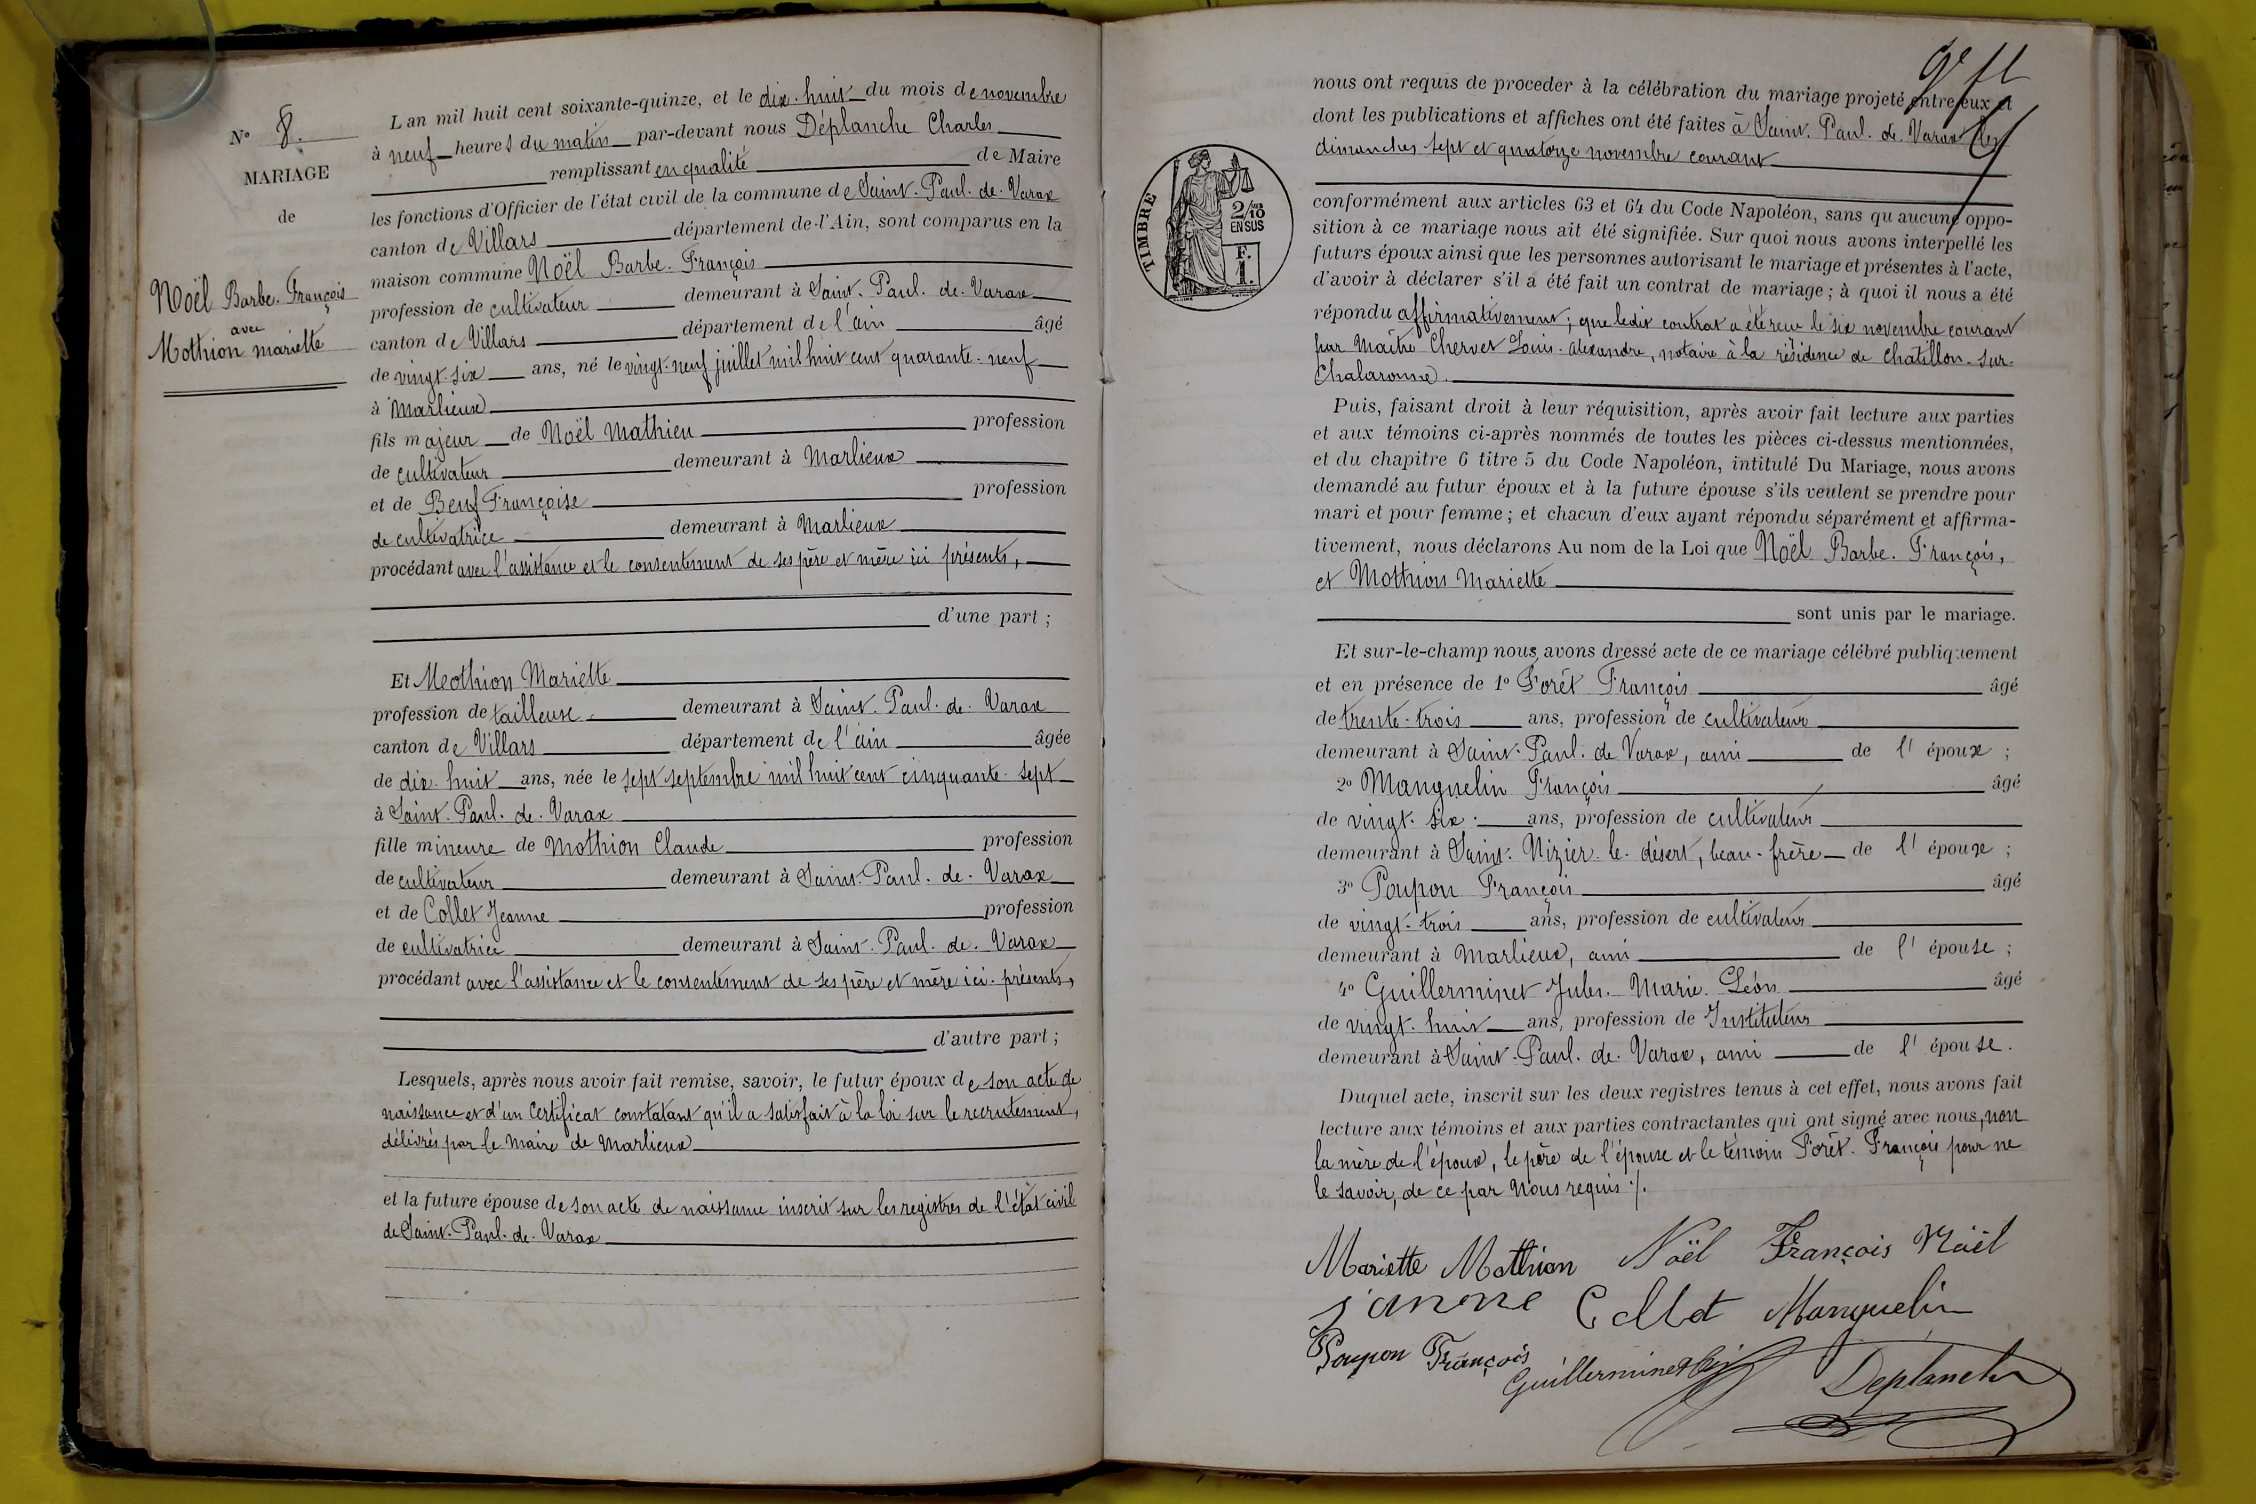 N° 8.
MARIAGE
de
Noël Barbe. François
avec
Mothion mariette
L an mil huit cent soixante-quinze, et le dix. huit du mois de novembre
à neuf heures du matin par-devant nous Déplanche Charles
remplissant en qualité de Maire
les fonctions d'Officier de l'état civil de la commune de Saint. Paul. de. Varax
canton de Villars département de l'Ain, sont comparus en la
maison commune Noël Barbe. François
profession de cultivateur demeurant à Saint. Paul. de. Varax
canton de Villars département de l'ain âgé
de vingt. six ans, né le vingt. neuf juillet mil huit cent quarante. neuf
à Marlieux
fils majeur de Noël Mathieu profession
de cultivateur demeurant à Marlieux
et de Beuf Françoise profession
de cultivatrice demeurant à Marlieux
procédant avec l'assistance et le consentement de ses père et mère ici présents,
d'une part ;
Et Meothion Mariette
profession de tailleuse demeurant à Saint. Paul. de. Varax
canton de Villars département de l'ain âgée
de dix. huit ans, née le sept septembre mil huit cent cinquante. sept
à Saint. Paul. de. Varax
fille mineure de Mothion Claude profession
de cultivateur demeurant à Saint. Paul. de. Varax
et de Collet Jeanne profession
de cultivatrice demeurant à Saint. Paul. de. Varax
procédant avec l'assistance et le consentement de ses père et mère ici. présents,
d'autre part ;
Lesquels, après nous avoir fait remise, savoir, le futur époux de son acte de
naissance et d'un Certificat constatant qu'il a satisfait à la loi sur le recrutement,
délivrés par le Maire de Marlieux
et la future épouse de son acte de naissance inscrit sur les registres de l'état civil
de Saint. Paul. de. Varax
nous ont requis de proceder à la célébration du mariage projeté entre eux et
dont les publications et affiches ont été faites à Saint. Paul. de. Varax les
dimanches sept et quatorze novembre courant
TIMBRE
2/10
EN SUS
F.
1.
conformément aux articles 63 et 64 du Code Napoléon, sans qu aucune oppo-
sition à ce mariage nous ait été signifiée. Sur quoi nous avons interpellé les
futurs époux ainsi que les personnes autorisant le mariage et présentes à l'acte,
d'avoir à déclarer s'il a été fait un contrat de mariage ; à quoi il nous a été
répondu affirmativement ; que ledit contrat a été recu le six novembre courant
par Maître Chervet Louis. alexandre, notaire à la résidence de Chatillon. sur.
Chalaronne.
Puis, faisant droit à leur réquisition, après avoir fait lecture aux parties
et aux témoins ci-après nommés de toutes les pièces ci-dessus mentionnées,
et du chapitre 6 titre 5 du Code Napoléon, intitulé Du Mariage, nous avons
demandé au futur époux et à la future épouse s'ils veulent se prendre pour
mari et pour femme ; et chacun d'eux ayant répondu séparément et affirma-
tivement, nous déclarons Au nom de la Loi que Noël Barbe. François,
et Mothion Mariette
sont unis par le mariage.
Et sur-le-champ nous avons dressé acte de ce mariage célébré publiquement
et en présence de 1° Forêt François âgé
de trente. trois ans, profession de cultivateur
demeurant à Saint. Paul. de Varax, ami de l'époux ;
2° Manguelin François âgé
de vingt. six. ans, profession de cultivateur
demeurant à Saint. Nizier. le. désert, beau. frère de l'époux ;
3° Poupon François âgé
de vingt. trois ans, profession de cultivateur
demeurant à Marlieux, ami de l'épouse ;
4° Guillerminet Jules. Marie. Léon âgé
de vingt. huit ans, profession de Instituteur
demeurant à Saint. Paul. de. Varax, ami de l'épouse.
Duquel acte, inscrit sur les deux registres tenus à cet effet, nous avons fait
lecture aux témoins et aux parties contractantes qui ont signé avec nous, non
la mère de l'époux, le père de l'épouse et le témoin Forêt. François pour ne
le savoir, de ce par Nous requis ./.
Mariette Mothion Noël François Noël
janne Collet Manguelin
Poupon François
Guillerminet Déplanche